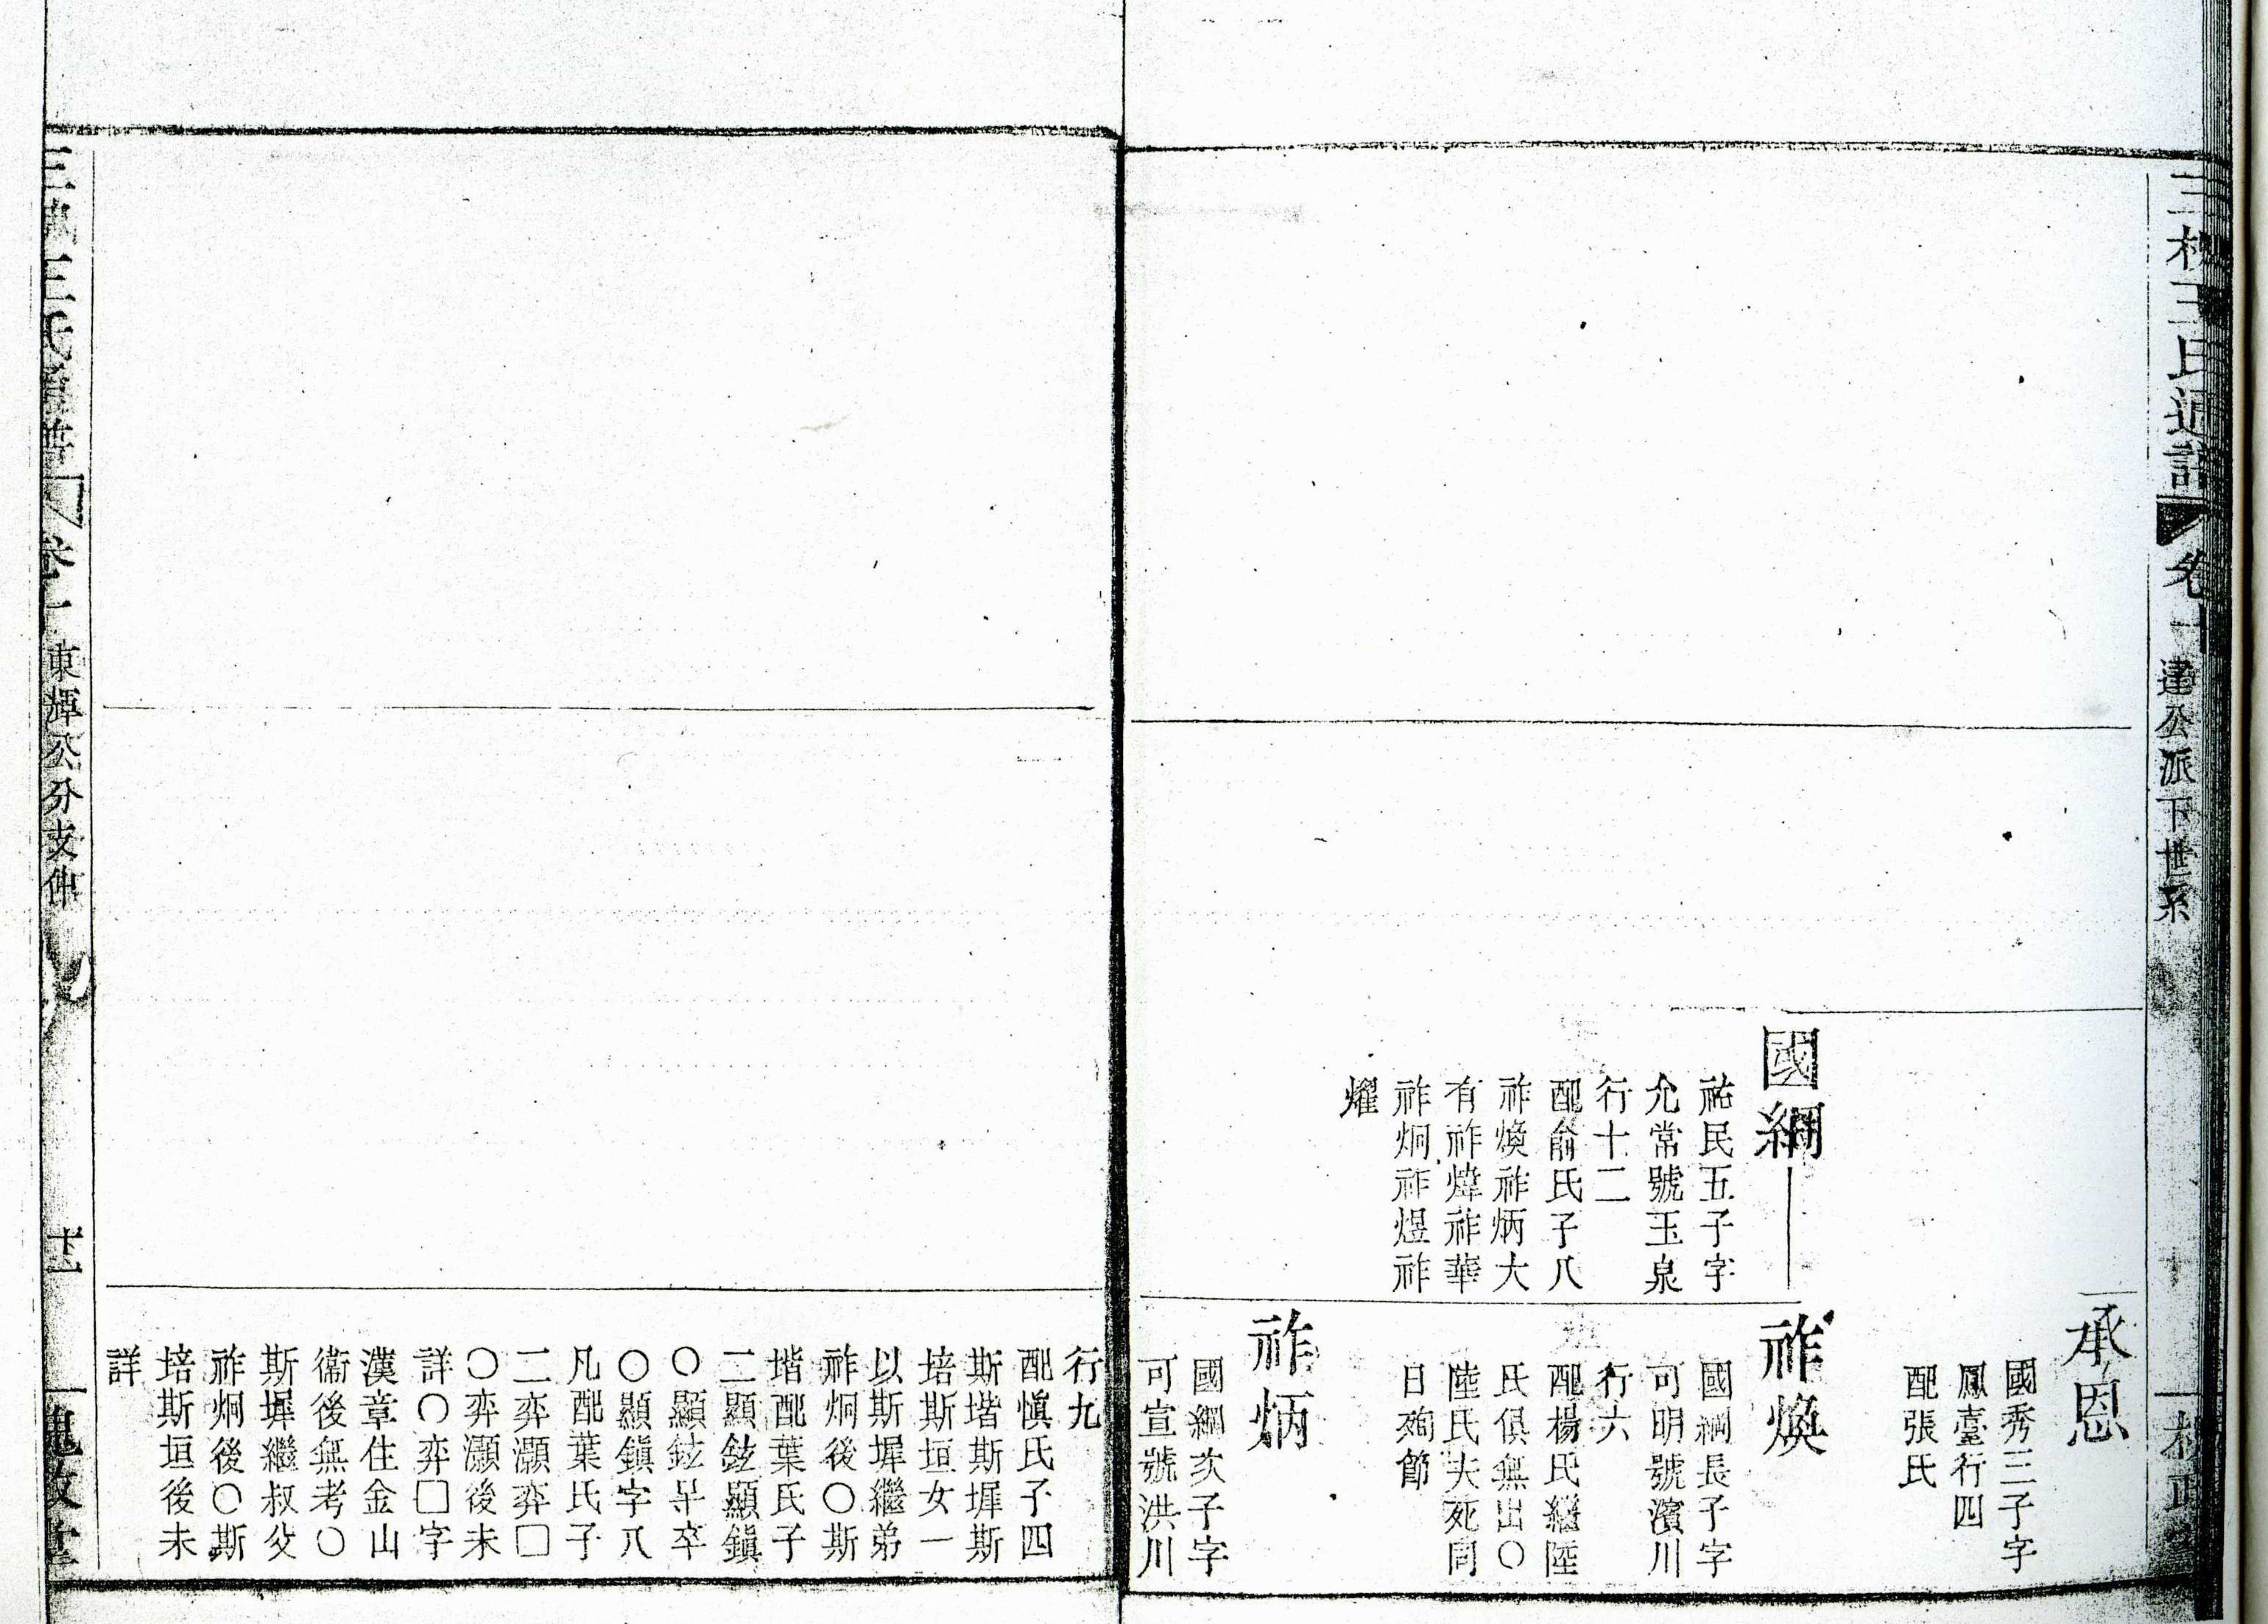 三槐王氏通譜
卷十一
達公派下世系
承恩
國秀三子字
鳳臺行四
配張氏
國綱
祐民五子字
允常號玉泉
行十二
配俞氏子八
祚煥祚炳大
有祚煒祚華
祚炯祚煜祚
燿
祚煥
國綱長子字
可明號濱川
行六
配楊氏繼陸
氏俱無出〇
陸氏夫死同
日殉節
祚炳
國綱次子字
可宣號洪川
行九
配愼氏子四
斯堦斯墀斯
培斯垣女一
以斯墀繼弟
祚炯後〇斯
堦配葉氏子
二顯鉉顯鎭
〇顯鉉早卒
〇顯鎭字八
凡配葉氏子
二弈灝弈□
〇弈灝後未
詳〇弈□字
漢章住金山
衞後無考〇
斯墀繼叔父
祚炯後〇斯
培斯垣後未
詳
三槐王氏通譜
卷十一
東輝公分支仲